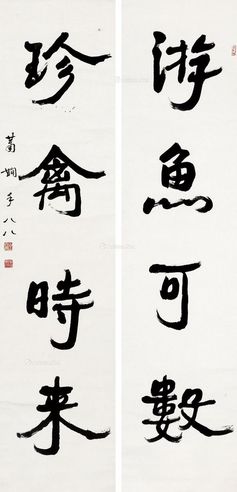 游魚可數
珍禽時来
蕭嫻年八八